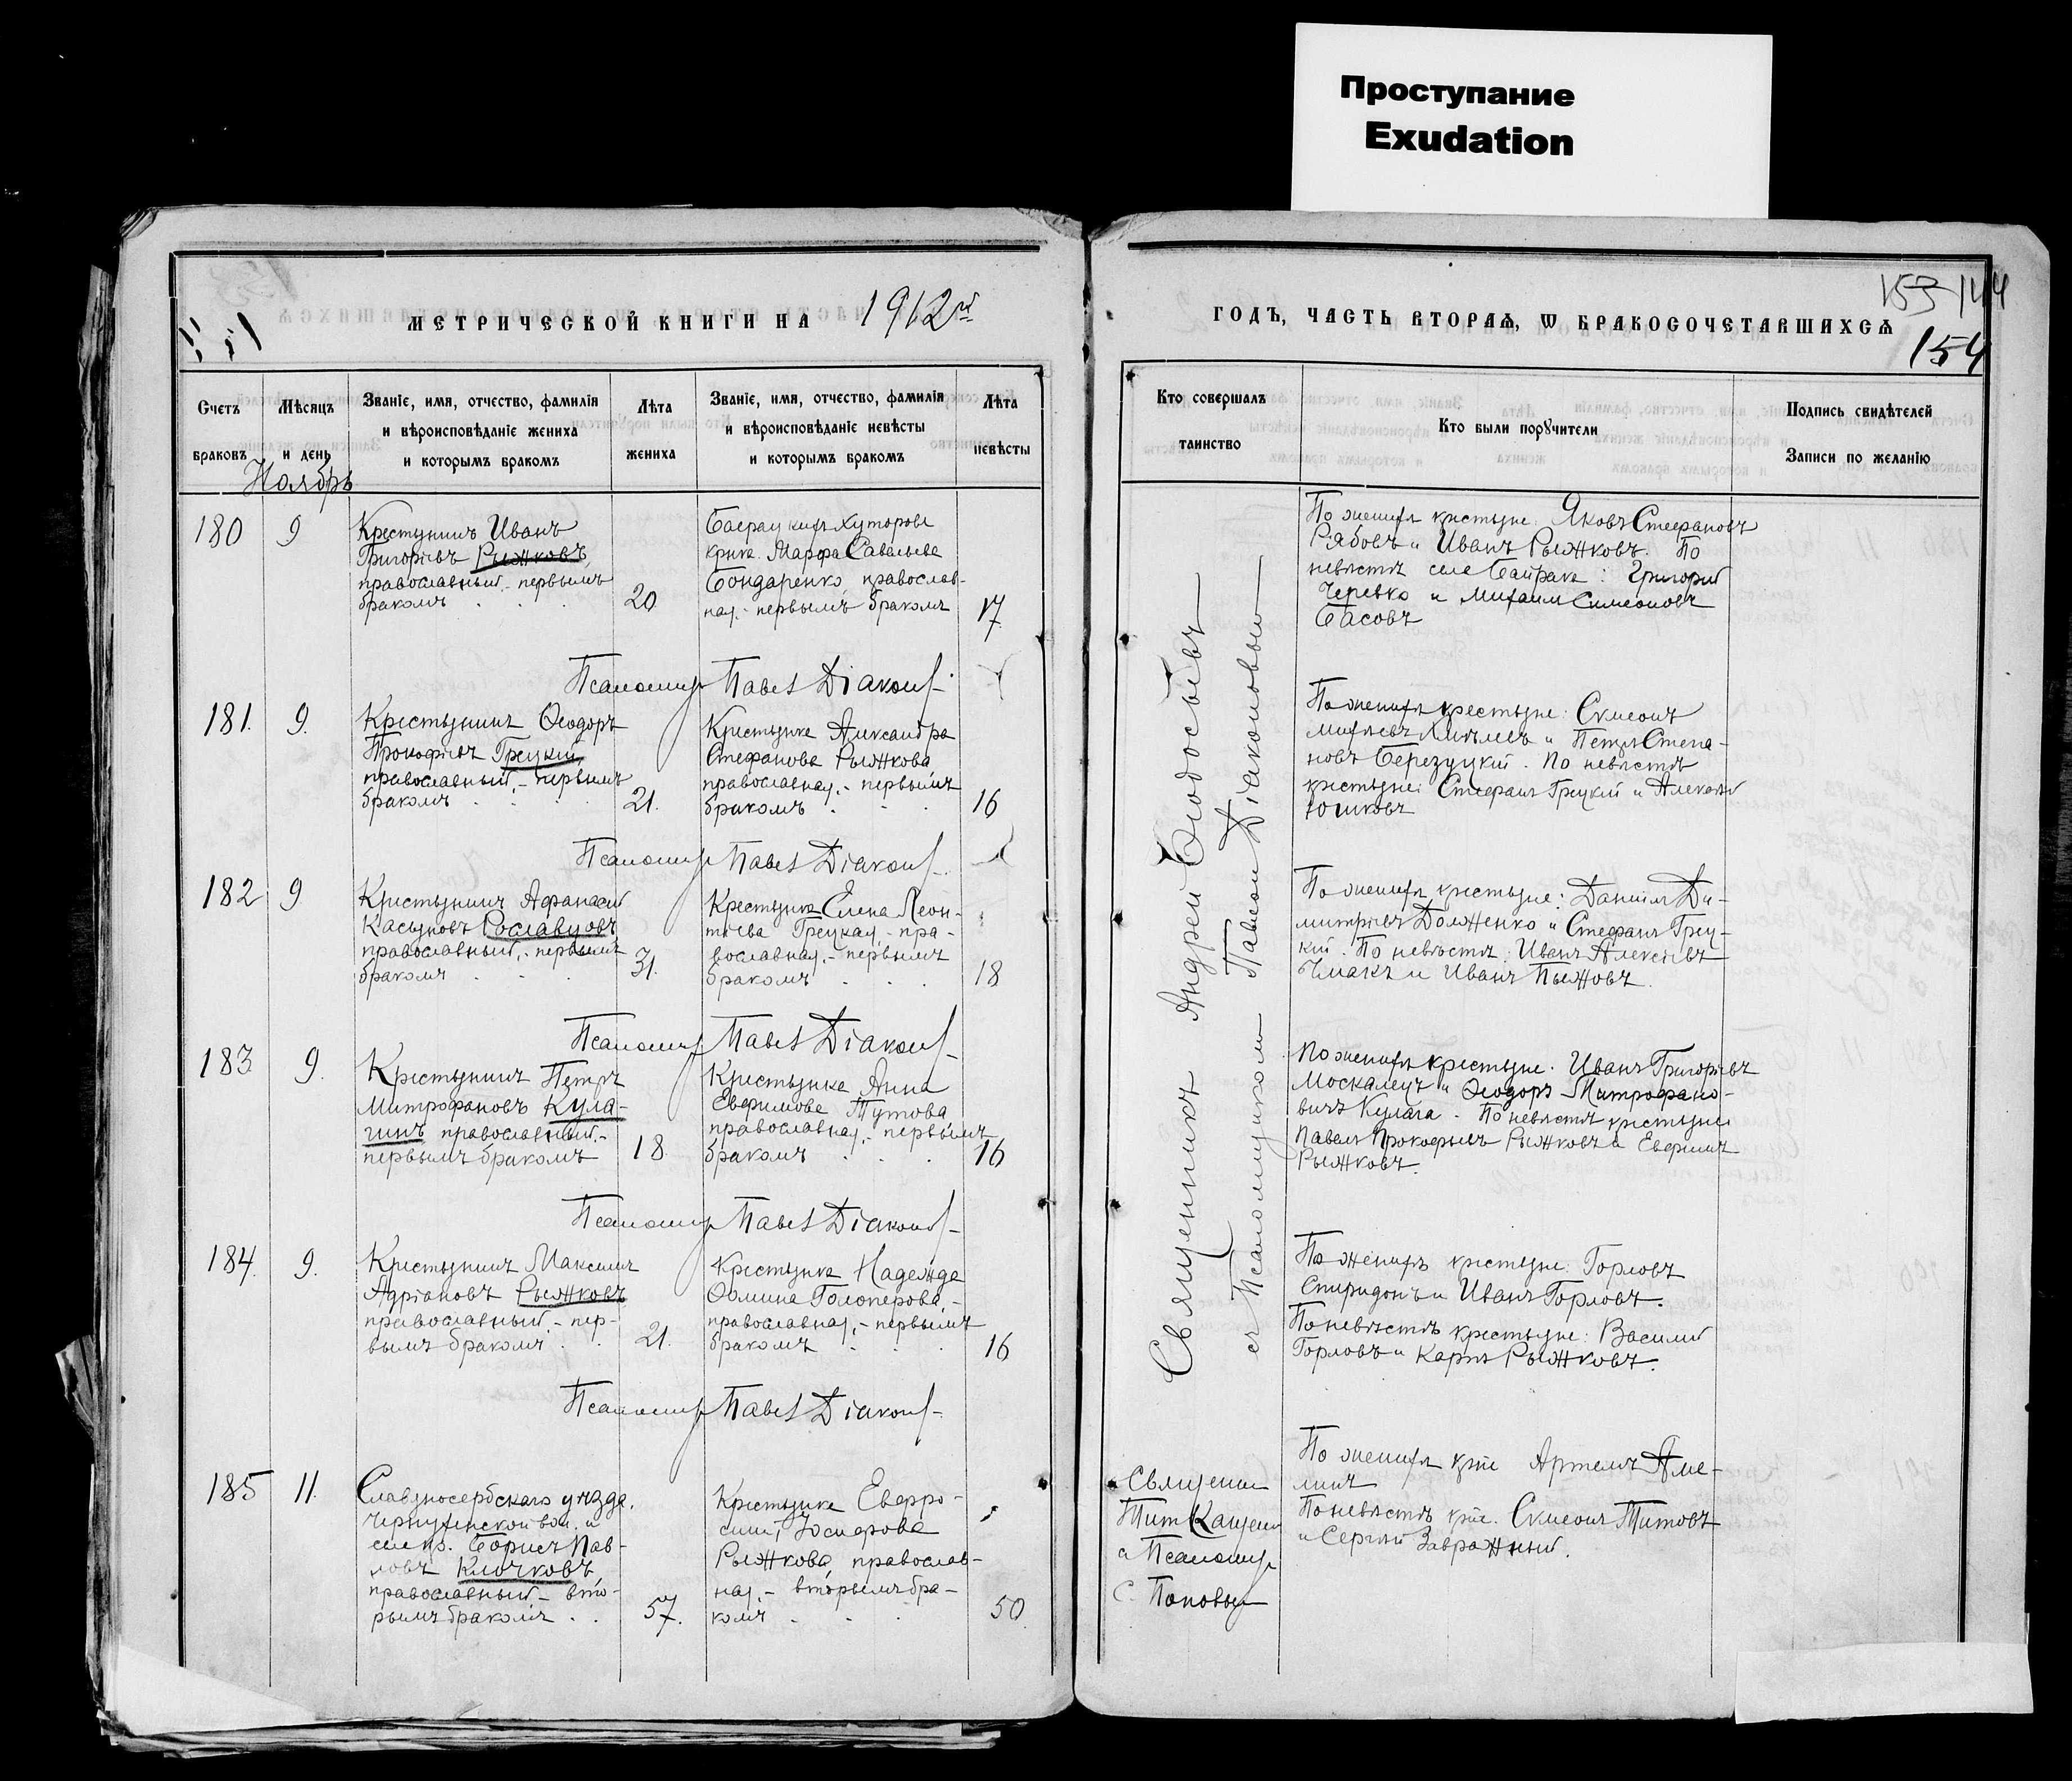 Проступание
Exudation
МЕТРИЧЕСКОЙ КНИГИ НА 1912й
ГОДЪ, ЧАСТЬ ВТОРАЯ, Ѡ БРАКОСОЧЕТАВШИХСѦ
153 144
154
Счетъ браковъ
Мѣсяцъ и день
Званіе, имя, отчество, фамилія
и вѣроисповѣданіе жениха
и которымъ бракомъ
Лѣта жениха
Званіе, имя, отчество, фамилія
и вѣроисповѣданіе невѣсты
и которымъ бракомъ
Лѣта невѣсты
Кто совершалъ таинство
Кто были порꙋчители
Подпись свидѣтелей
Записи по желанію
Ноябрь
180 9
Крестьянинъ Иванъ
Григорьевъ Рыжковъ,
православный,- первымъ
бракомъ 20
хуторовъ
Марфа Савельева
Бондаренко, православ-
ная,- первымъ бракомъ 17
По женихѣ крестьяне: Яковъ Стефановъ
Рябовъ и Иванъ Рыжковъ. По
невѣстѣ села Байрака: Григорій
Черевко и Михаилъ Симеоновъ
Басовъ
Псаломщ Павел Діаконов
181. 9.
Крестьянинъ Ѳеодоръ
Прокофьевъ Грецкій,
православный,- первымъ
бракомъ 21.
Крестьянка Александра
Стефанова Рыжкова
православная,- первымъ
бракомъ 16
По женихѣ крестьяне: Симеонъ
и Петръ Степа-
новъ Березуцкій. По невѣстѣ
крестьяне: Стефанъ Грецкій и Алексѣй
Юшковъ
Псаломщ Павел Діаконов
182 9
Крестьянинъ Афанасій
Касьяновъ Рославцовъ
православный,- первымъ
бракомъ 31.
Крестьянка Елена Леон-
тіева Грецкая,- пра-
вославная,- первымъ
бракомъ 18
По женихѣ крестьяне: Даніилъ Ди-
митріевъ Долженко и Стефанъ Грец-
кій. По невѣстѣ: Иванъ Алексѣевъ
Чмакъ и Иванъ Пыжовъ.
Псаломщ Павел Діаконов
183 9.
Крестьянинъ Петръ
Митрофановъ Кула-
гинъ православный,-
первымъ бракомъ 18.
Крестьянка Анна
Евфимова Тутова
православная,- первымъ
бракомъ 16
По женихѣ крестьяне: Иванъ Григорьевъ
Москалецъ и Ѳеодоръ Митрофано-
вичъ Кулага. По невѣстѣ крестьяне:
Павелъ Прокофьевъ Рыжковъ и Евфимъ
Рыжковъ.
Псаломщ Павел Діаконов
184. 9.
Крестьянинъ Максимъ
Адріановъ Рыжковъ
православный,- пер-
вымъ бракомъ 21.
Крестьянка Надежда
Ѳомина Голоперова,-
православная,- первымъ
бракомъ 16
По женихѣ крестьяне: Горловъ
Спиридонъ и Иванъ Горловъ.
По невѣстѣ крестьяне: Василій
Горловъ и Карпъ Рыжковъ.
Псаломщ Павел Діаконов
Священникъ Андрей Ѳеодосьевъ
съ Псаломщикомъ Павломъ Діаконовымъ
185 11.
Славяносербскаго уѣзда,
вол. и
Борисъ Пав-
ловъ Клочковъ,
православный,- вто-
рымъ бракомъ 57.
Крестьянка Евфро-
синія Іосифова
Рыжкова, православ-
ная,- вторымъ бра-
комъ 50.
Священ
Тит
и Псаломщ
С. Поповъ
По женихѣ кр-не Артемъ
По невѣстѣ кр-не. Симеонъ Титовъ
и Сергѣй Завражный.